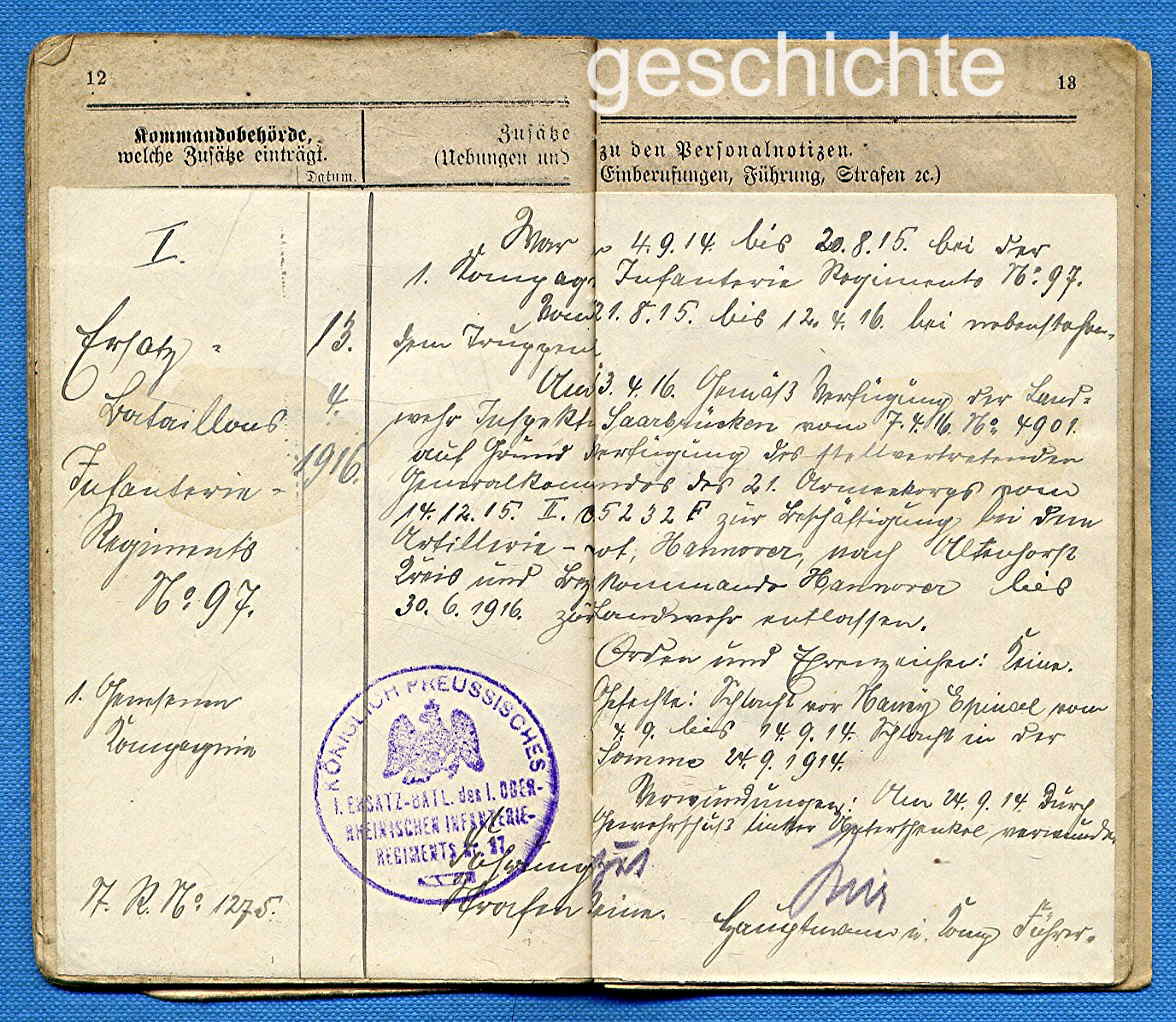 geschichte
12
13
Kommandobehörde,
welche Zusätze einträgt.
Datum.
Zusätze zu den Personalnotizen.
(Uebungen und Einberufungen, Führung, Strafen ꝛc.)
I.
Ersatz-
Bataillons
Infanterie-
Regiments
No. 97.
13.
4.
1916.
1. Genesenen
Kompagnie
N. R. No. 1275.
War 4.9.14. bis 20.8.15. bei der
1. Kompag Infanterie Regiments No. 97.
Vom 21.8.15. bis 12.4.16. bei nebenstehen-
dem Truppen
Am 13.4.16. Gemäß Verfügung der Land-
wehr Inspekti Saarbrücken vom 7.4.16. No. 4901.
auf Grund Verfügung des stellvertretenden
Generalkommandos des 21. Armeekorps vom
14.12.15. II. 5232 F zur Beschäftigung bei dem
Artillerie- ot, Hannover, nach Altenhorst
Kreis und Bezkommando Hannover bis
30.6.1916. zur Landwehr entlassen.
Orden und Ehrenzeichen: Keine.
Gefechte: Schlacht vor Nancy Epinal vom
4.9. bis 14.9.14. Schlacht in der
Somme 24.9.1914.
Verwundungen: Am 24.9.14. durch
Gewehrschuß linker Unterschenkel verwundet
Führung gut
Strafen keine.
Hauptmann u. Komp Führer.
KÖNIGLICH PREUSSISCHES
I. ERSATZ-BATL. des I. OBER-
RHEINISCHEN INFANTERIE-
REGIMENTS Nr. 97